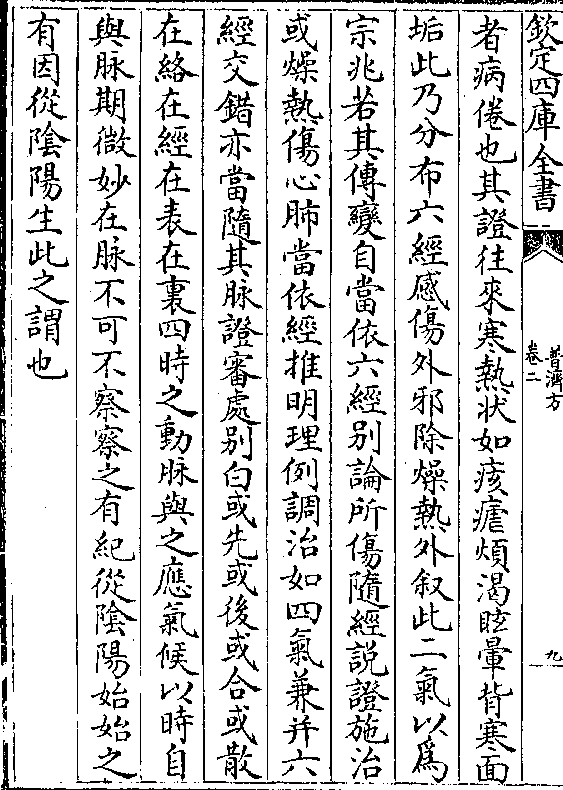 欽定四庫全書
普濟方
卷二
九
者病倦也其證往來寒熱狀如痎瘧煩渴眩暈背寒面
垢此乃分布六經感傷外邪除燥熱外叙此二氣以爲
宗兆若其傳變自當依六經别論所傷隨經説證施治
或燥熱傷心肺當依經推明理例調治如四氣兼并六
經交錯亦當隨其脉證審處别白或先或後或合或散
在絡在經在表在裏四時之動脉與之應氣候以時自
與脉期微妙在脉不可不察察之有紀從陰陽始始之
有因從陰陽生此之謂也